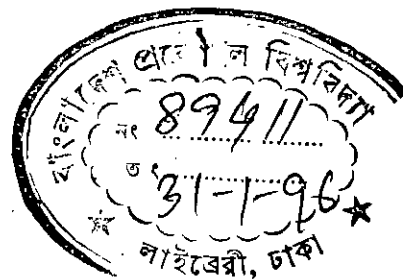 বাংলাদেশ প্রকৌশল বিশ্ববিদ্যা
নং 89411
তং 31-1-96
লাইব্রেরী, ঢাকা